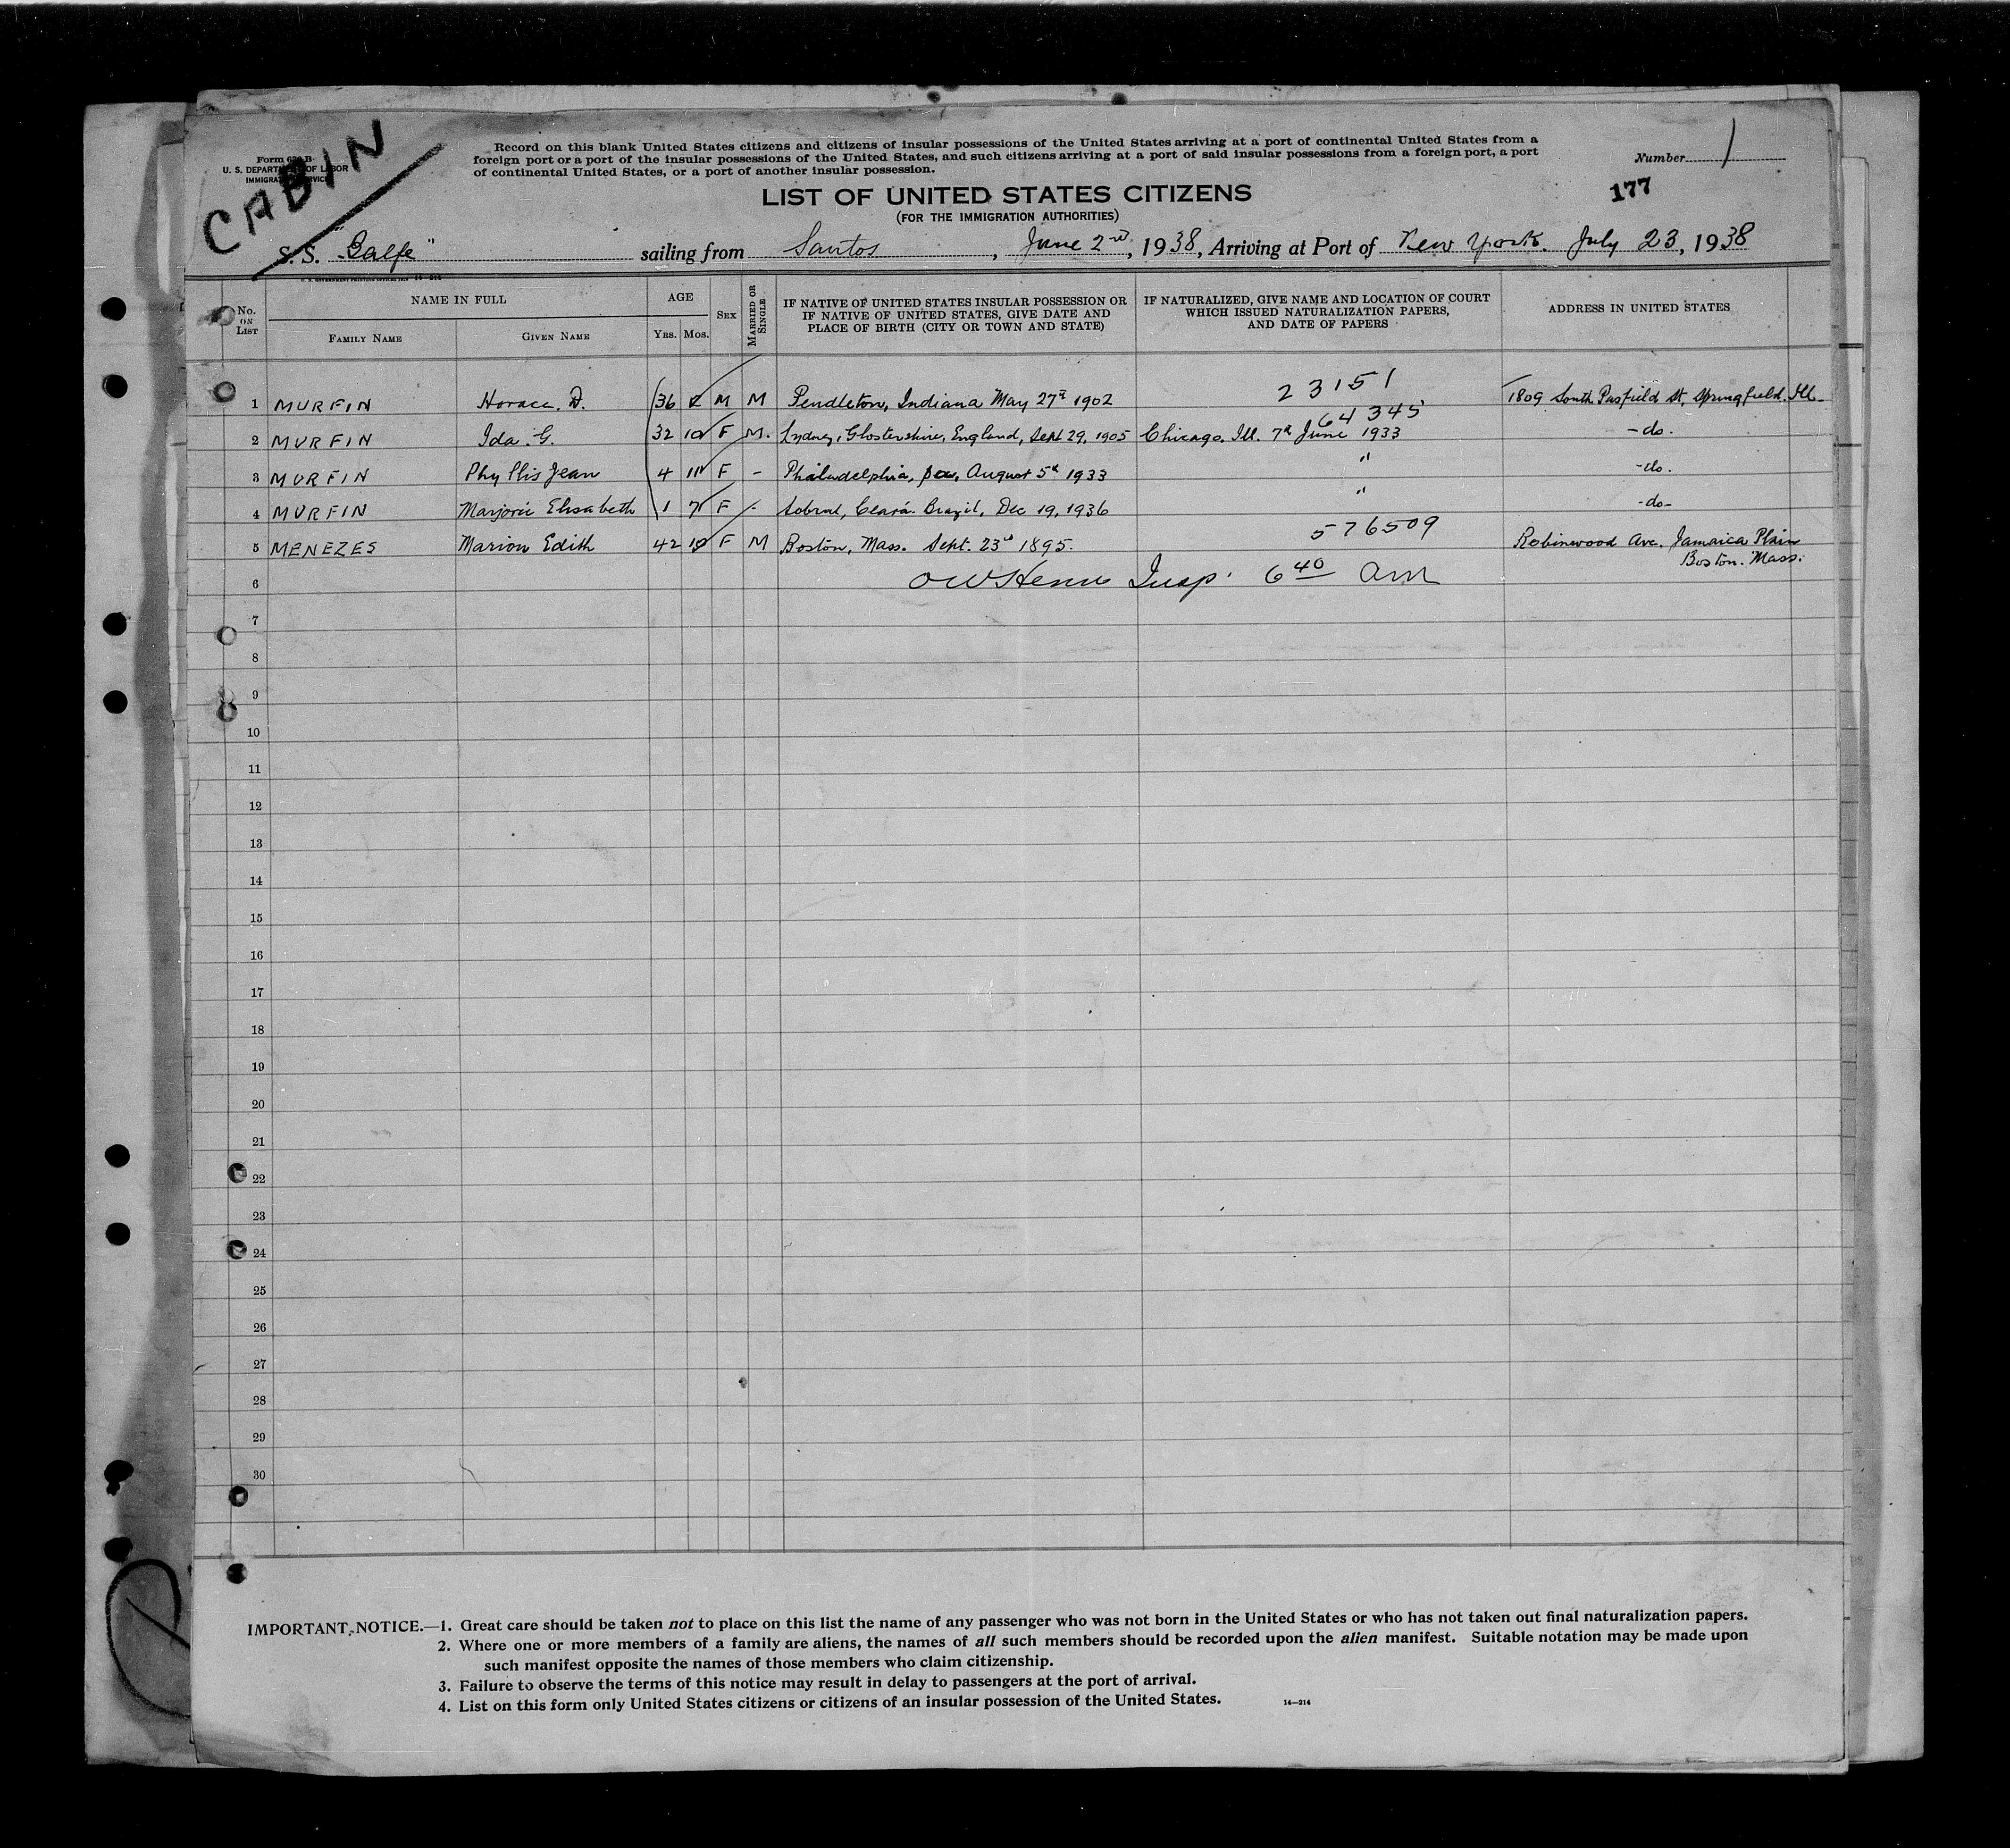 CABIN
Form 630 B
U. S. DEPARTMENT OF LABOR
IMMIGRATION SERVICE
Record on this blank United States citizens and citizens of insular possessions of the United States arriving at a port of continental United States from a
foreign port or a port of the insular possessions of the United States, and such citizens arriving at a port of said insular possessions from a foreign port, a port
of continental United States, or a port of another insular possession.
Number 1
177
LIST OF UNITED STATES CITIZENS
(FOR THE IMMIGRATION AUTHORITIES)
S. S. "Balfe" sailing from Santos, June 2nd, 1938, Arriving at Port of New York. July 23, 1938
No. ON LIST
NAME IN FULL
FAMILY NAME
GIVEN NAME
AGE
YRS. MOS.
SEX
MARRIED OR SINGLE
IF NATIVE OF UNITED STATES INSULAR POSSESSION OR
IF NATIVE OF UNITED STATES, GIVE DATE AND
PLACE OF BIRTH (CITY OR TOWN AND STATE)
IF NATURALIZED, GIVE NAME AND LOCATION OF COURT
WHICH ISSUED NATURALIZATION PAPERS,
AND DATE OF PAPERS
ADDRESS IN UNITED STATES
1 MURFIN Horace. D. 36 2 M M Pendleton, Indiana May 27th 1902 23151 1809 South Pasfield St, Springfield. Ill.
2 MURFIN Ida. G. 32 10 F M. Lydney, Glostershire, England, Sept 29, 1905 64345 Chicago, Ill. 7th June 1933 -do.
3 MURFIN Phyllis Jean 4 11 F - Philadelphia, pa, August 5th 1933 " -do.
4 MURFIN Marjorie Elisabeth 1 7 F - Sobral, Ceará. Brazil, Dec 19, 1936 " -do-
5 MENEZES Marion Edith 42 10 F M Boston, Mass. Sept. 23rd 1895. 576509 Robinwood Ave. Jamaica Plain
Boston. Mass.
6 Insp. 6 40 am
7
8
9
10
11
12
13
14
15
16
17
18
19
20
21
22
23
24
25
26
27
28
29
30
IMPORTANT NOTICE.—1. Great care should be taken not to place on this list the name of any passenger who was not born in the United States or who has not taken out final naturalization papers.
2. Where one or more members of a family are aliens, the names of all such members should be recorded upon the alien manifest. Suitable notation may be made upon
such manifest opposite the names of those members who claim citizenship.
3. Failure to observe the terms of this notice may result in delay to passengers at the port of arrival.
4. List on this form only United States citizens or citizens of an insular possession of the United States.
14—214